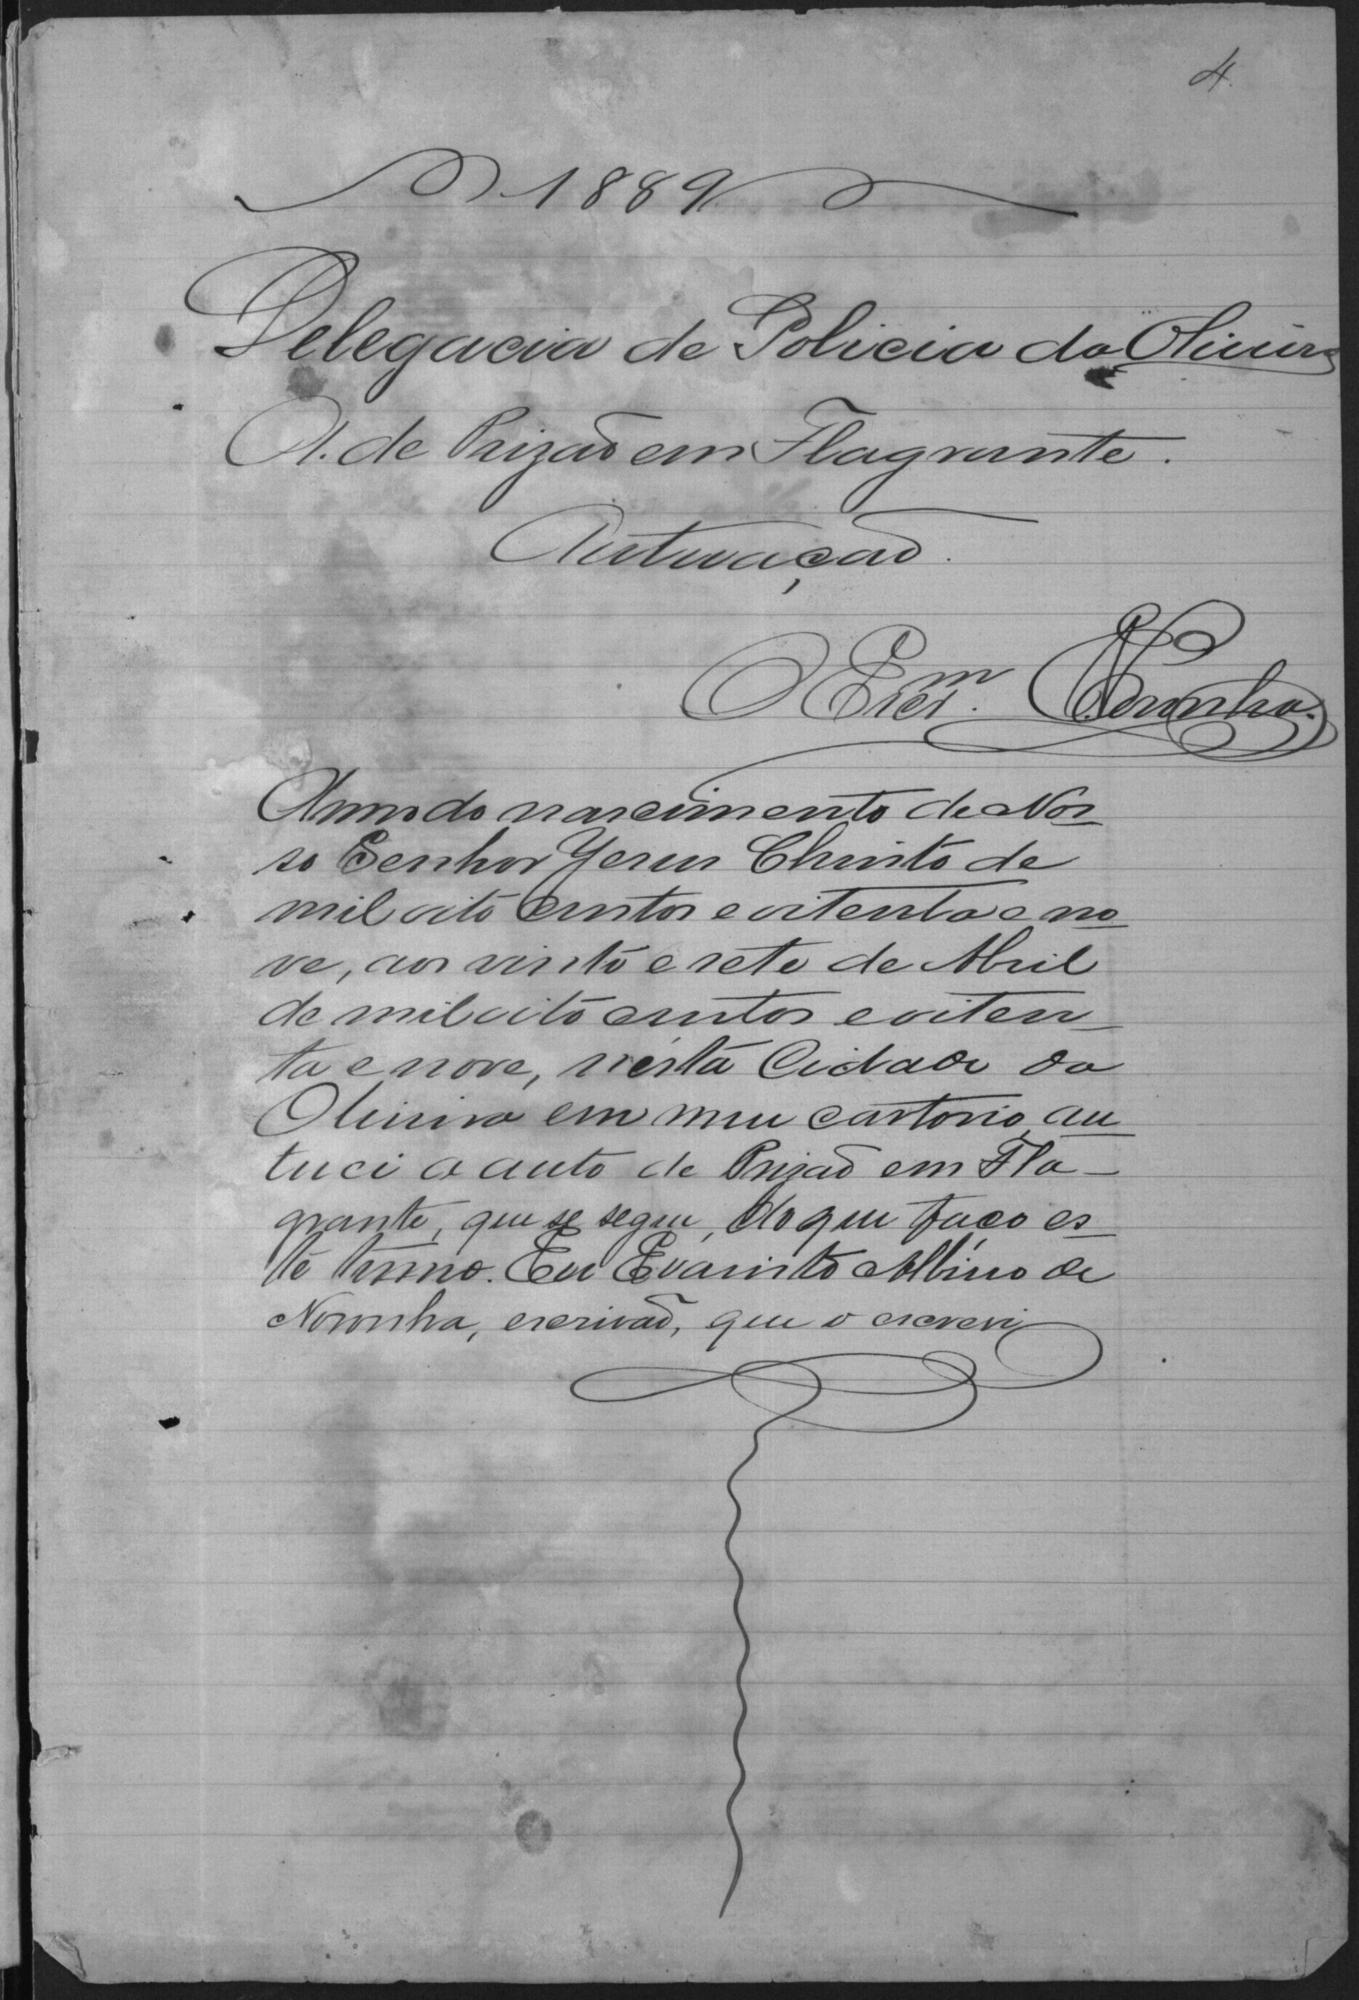 4
1889
Delegacia de Policia da Oliveira
A. de Prizaõ em Flagrante.
Autuaçaõ.
O Escr.m Noronha.
Anno do nascimento de Nos
so Senhor Jesus Christo de
mil oito centos e oitenta e no
ve, aos vinte e sete de Abril
de mil oito centos e oiten
ta e nove, n'esta Cidade da
Oliveira em meu cartorio, au
tuei o auto de Prizaõ em Fla-
grante, que se segue, do que faço es
te termo. Eu Evaristo Albino de
Noronha, escrivaõ, que o escrevi